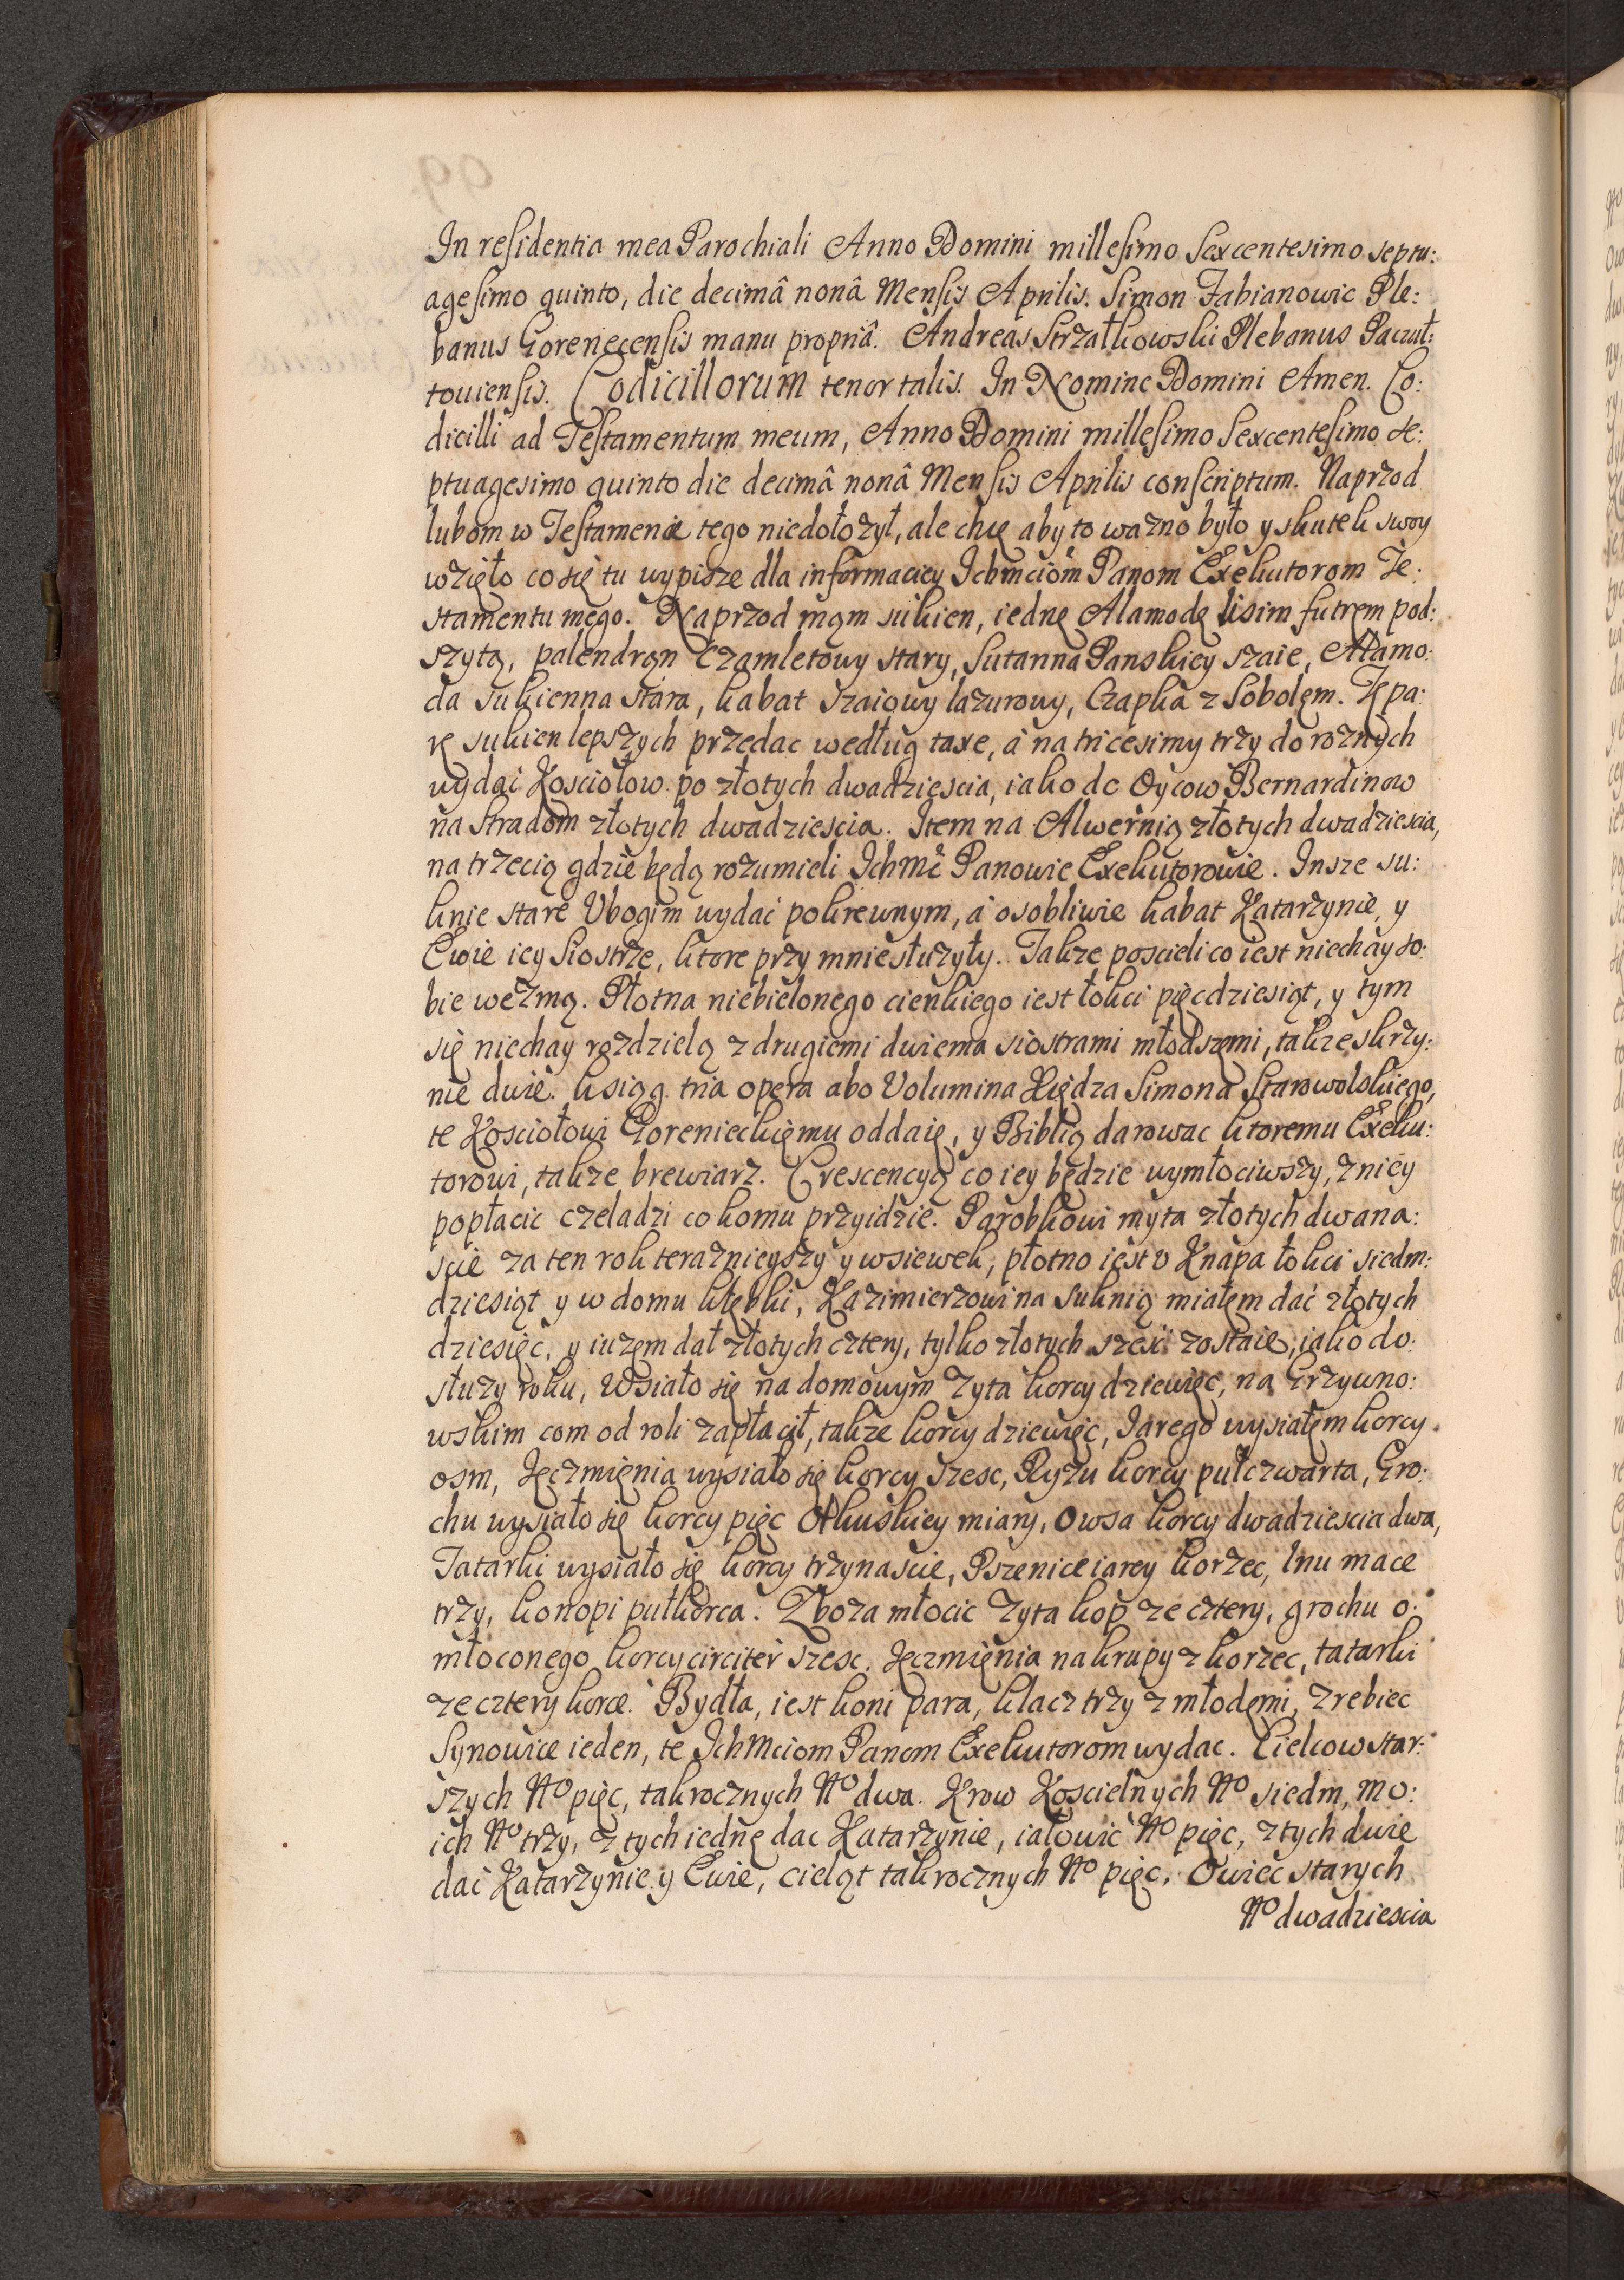 In residentia mea Parochiali Anno Domini millesimo Sexcentesimo septu:
agesimo quinto, die decimâ nonâ Mensis Aprilis. Simon Fabianowic Ple:
banus Gorenecensis manu propriâ. Andreas Strzałkowski Plebanus Paczuł:
toviensis. Codicillorum tenor talis. In Nomine Domini Amen. Co:
dicilli ad Testamentum meum, Anno Domini millesimo Sexcentesimo se:
ptuagesimo quinto die decimâ nonâ Mensis Aprilis conscriptum. Naprzod
lubom w Testamencie tego niedołozył, ale chcę aby to wazno było y skutek swoy
wzięło co się tu wypisze dla informaciey Ichmciom Panom Exekutorom Te:
stamentu mego. Naprzod mąm sukien, iednę Alamodę lisim futrem pod:
szytą, palendrąn Czamletowy stary, Sutanna Panskiey szaie, Allamo:
da sukienna stara, kabat szaiowy lazurowy, Czapka z Sobolem. Tę pa:
rę sukien lepszych przedac według taxe, á na tricesimy trzy do roznych
wydai Kosciołow po złotych dwadziescia, iako do Oycow Bernardinow
na Stradom złotych dwadziescia. Item na Alwernią złotych dwadziescia,
na trzecią gdzie będą rozumieli Ichmć Panowie Exekutorowie. Insze su:
knie stare Vbogim wydać pokrewnym, á osobliwie kabat Katarzynie, y
Ewie iey Siostrze, ktore przy mnie słuzyły. Takze poscieli co iest niechay so:
bie wezmą. Płotna niebielonego cienkiego iest łokci pięcdziesiąt, y tym
się niechay rozdzielą z drugiemi dwiema siostrami młodszemi, takze skrzy:
nie dwie. ksiąg tria opera abo Volumina Xiędza Simona Starowolskiego,
te Kosciołowi Gorenieckięmu oddaię, y Biblią darowac ktoremu Exeku:
torowi, takze brewiarz. Crescencyą co iey będzie wymłociwszy, z niey
popłacic czeladzi co komu przyidzie. Parobkowi myta złotych dwana:
scie za ten rok teraznieyszy y wsiewek, płotno iest v Knapa łokci siedm:
dziesiąt y w domu kłębki, Kazimierzowi na Suknią miałem dać złotych
dziesięć, y iuzem dał złotych cztery, tylko złotych szesć zostaie, iako do:
słuzy roku, Wsiało się na domowym zyta korcy dziewięc, na Grzywno:
wskim com od roli zapłacił, takze korcy dziewięc, Iarego wysiałem korcy
osm, Jęczmięnia wysiało się korcy szesc, Ryzu korcy pułczwarta, Gro:
chu wysiało się korcy pięc Olkuskiey miary, Owsa korcy dwadziescia dwa,
Tatarki wysiało się korcy trzynascie, Pszenice iarey korzec, lnu mace
trzy, konopi pułkorca. Zboza młocic zyta kop ze cztery, grochu o:
młoconego korcy circiter szesc. Jęczmięnia na krupy z korzec, tatarki
ze cztery korce. Bydła, iest koni para, klacz trzy z młodemi, zrebiec
Synowice ieden, te Ichmciom Panom Exekutorom wydac. Cielcow star:
szych No pięc, takrocznych No dwa. Krow Koscielnych No siedm, mo:
ich No trzy, z tych iednę dac Katarzynie, iałowic No pięc, z tych dwie
dać Katarzynie y Ewie, cieląt takrocznych No pięc. Owiec starych
No dwadziescia